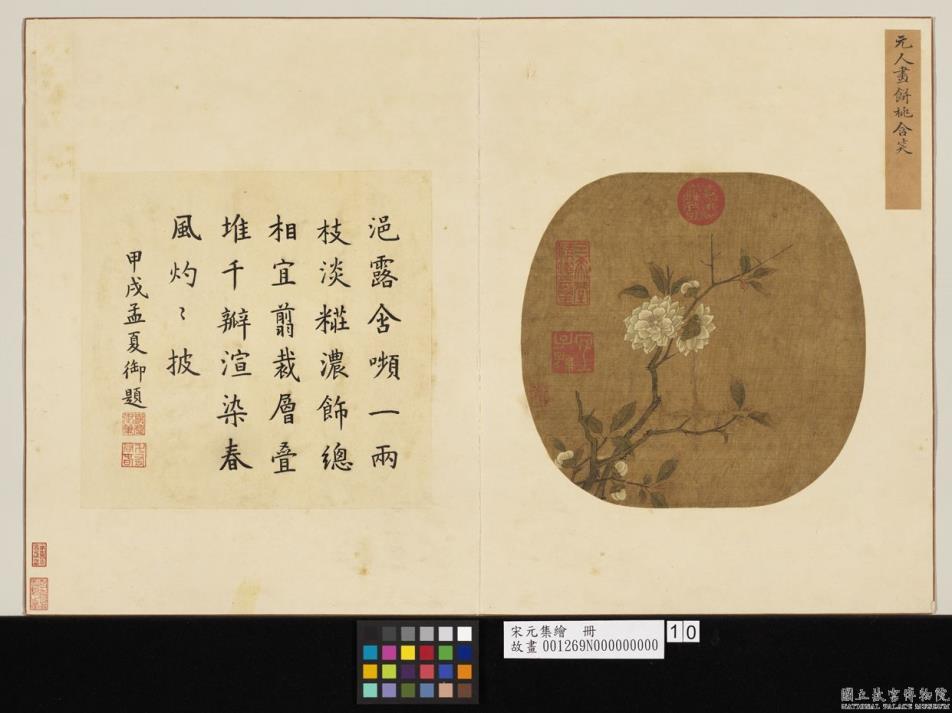 元人畫餅桃含笑
三希堂精鑑璽
宜子孫
浥露含嚬一兩
枝淡糚濃飾總
相宜翦裁層叠
堆千瓣渲染春
風灼〻披
甲戌孟夏御題
宋元集繪 冊
故畫 001269N000000000
10
國立故宮博物院
NATIONAL PALACE MUSEUM